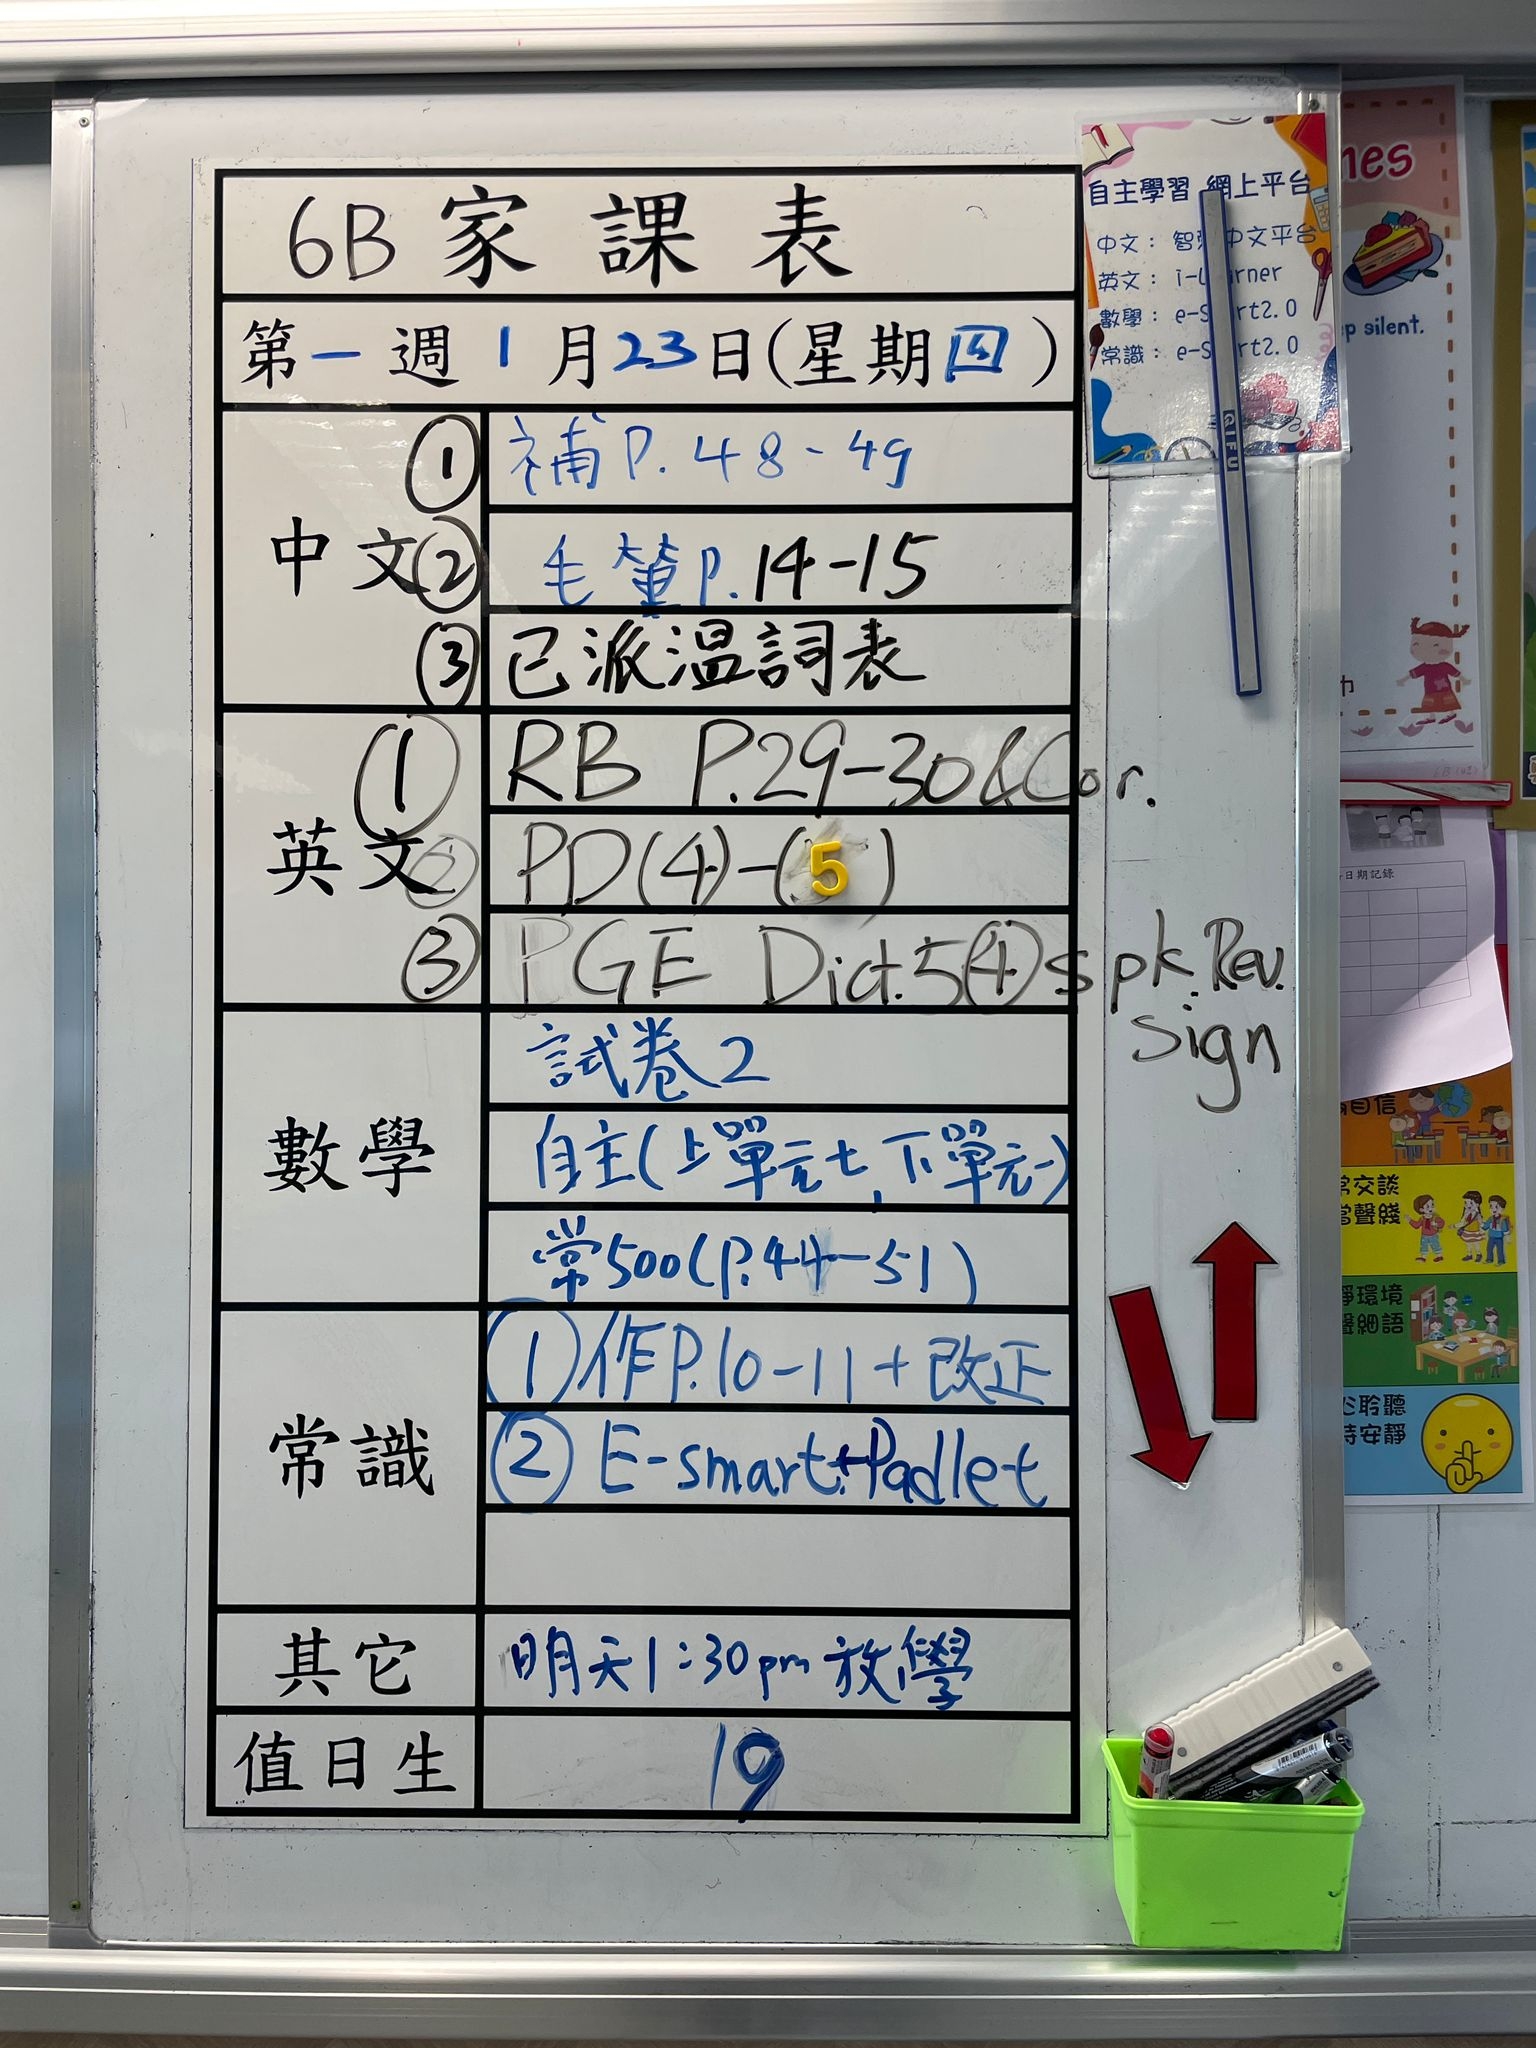 6B 家課表
第一週 1月23日(星期四)
中文
① 補 P. 48-49
② 毛筆 P. 14-15
③ 已派溫詞表
英文
① RB P.29-30 & Cor.
② PD(4)-(5)
③ PGE Dict.5 ④ spk. Rev.
sign
數學
試卷2
自主(上單元七,下單元一)
常500(P.44-51)
常識
① 作P.10-11+改正
② E-smart+Padlet
其它
明天1:30pm放學
值日生
19
自主學習 網上平台
中文: 智 中文平台
英文: i-L rner
數學: e-S rt2.0
常識: e-S rt2.0
GIFU
mes
ep silent.
巾
日期記錄
自信
交談
聲綫
環境
細語
心聆聽
持安靜